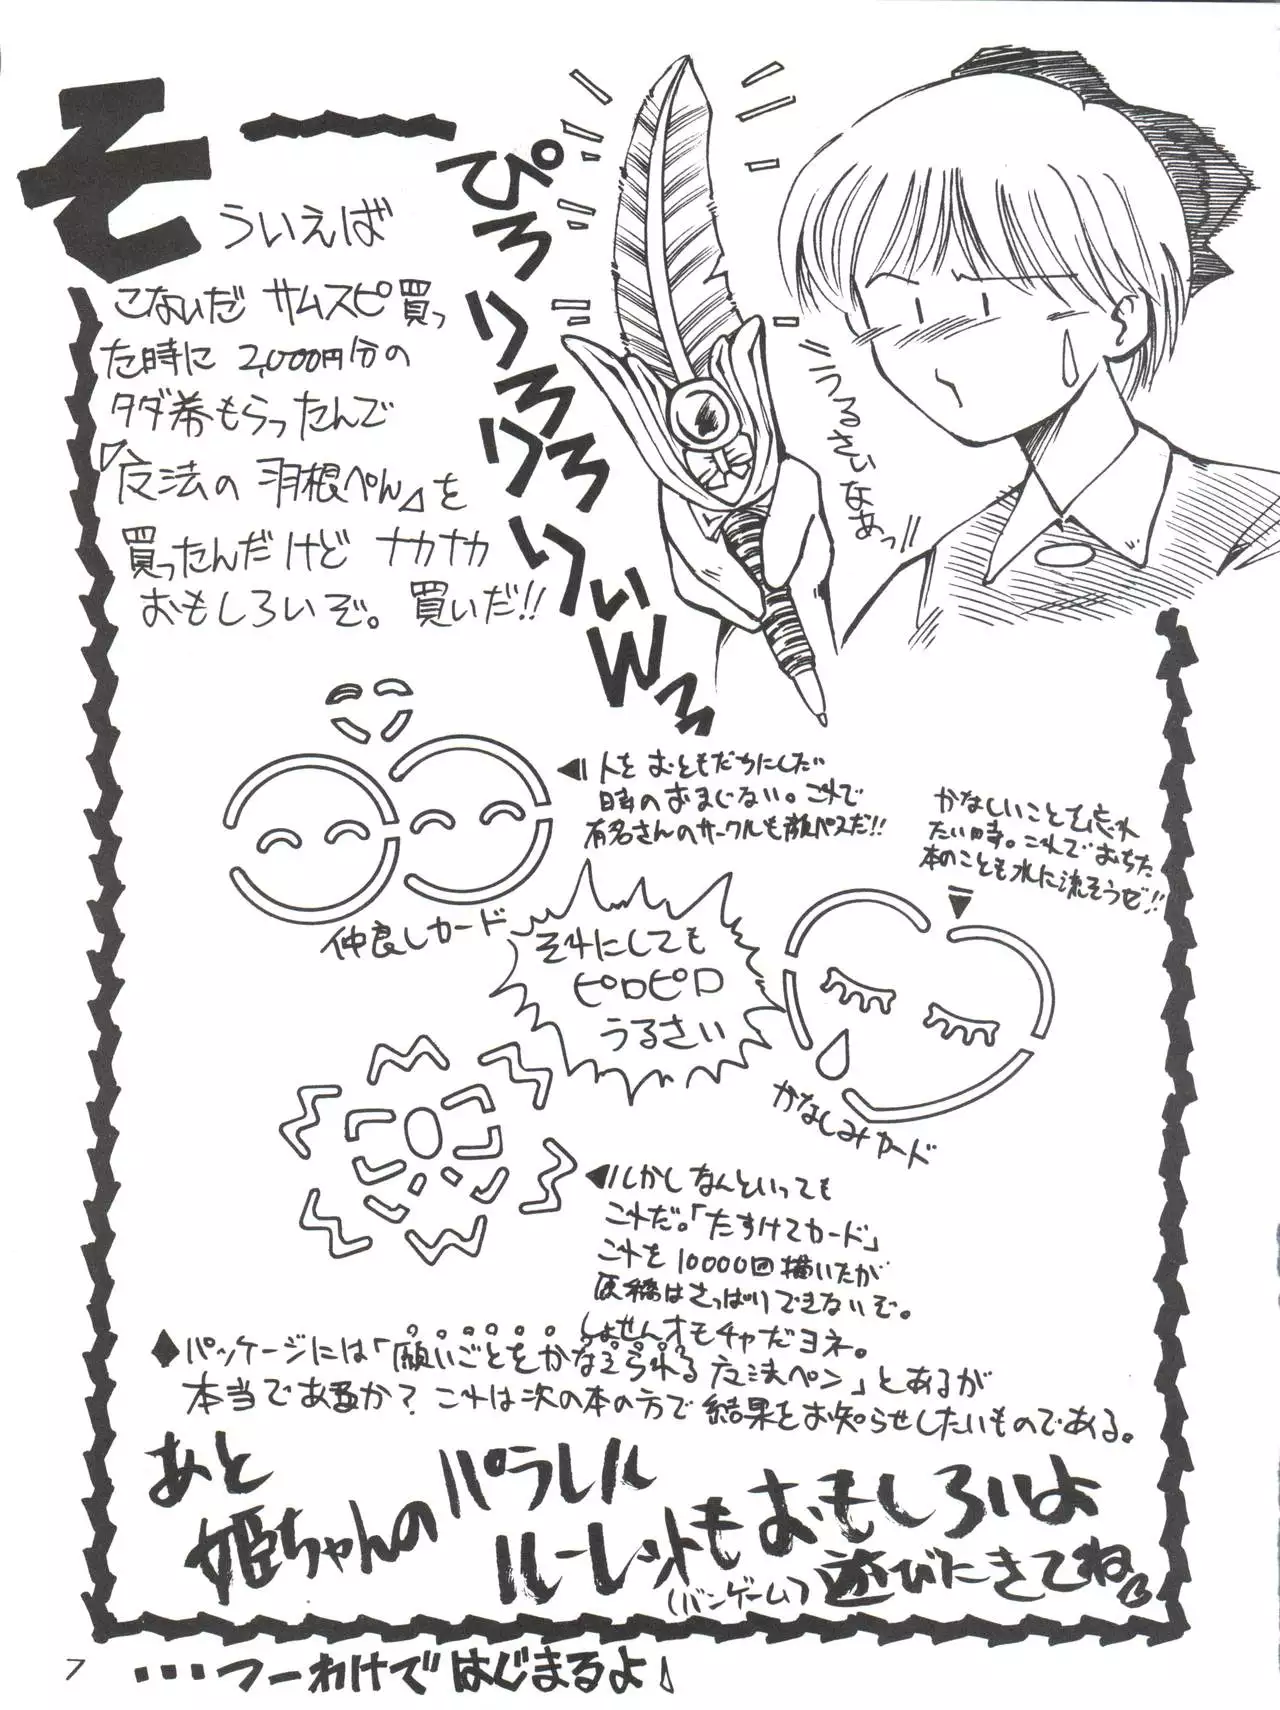 そういえば
こないだ サムスピ買っ
た時に 2,000円分の
タダ券もらったんで
『魔法の羽根ぺん』を
買ったんだけど ナカナカ
おもしろいぞ。買いだ!!
ぴろりろりろりろりぃWろ
うるさいなあっ!!
◀人をおともだちにしたい
時のおまじない。これで
有名さんのサークルも顔パスだ!!
仲良しカード
かなしいことを忘れ
たい時。これでおちた
本のことも水に流そうぜ!!
▼
それにしても
ピロピロ
うるさい
かなしみカード
◀しかしなんといっても
これだ。「たすけてカード」
これを10000回描いたが
原稿はさっぱりできないぞ。
しょせんオモチャだヨネ。
◆パッケージには「願いごとをかなえられる魔法ペン」とあるが
本当であるか？これは次の本の方で結果をお知らせしたいものである。
あと
姫ちゃんのパラレル
ルーレットもおもしろいよ
(バンゲーム) 遊びにきてね
7
・・・つーわけではじまるよ♪